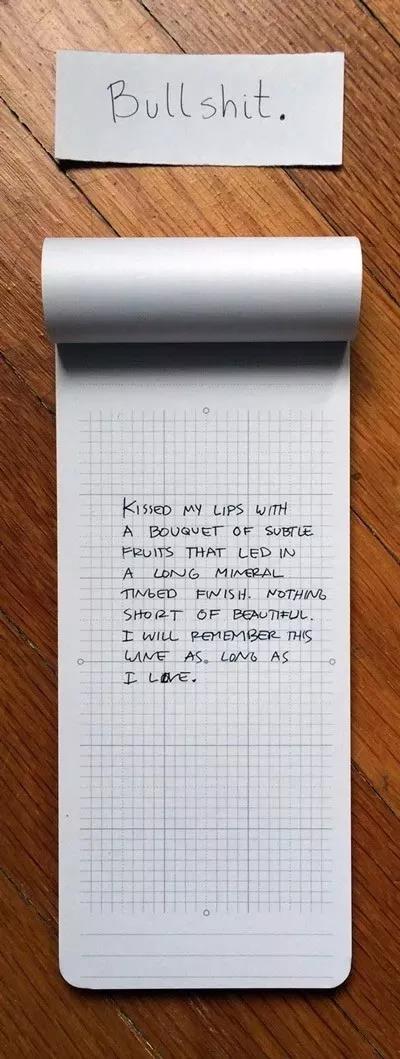 Bullshit.
KISSED MY LIPS WITH
A BOUQUET OF SUBTLE
FRUITS THAT LED IN
A LONG MINERAL
TINGED FINISH. NOTHING
SHORT OF BEAUTIFUL.
I WILL REMEMBER THIS
WINE AS LONG AS
I LOVE.